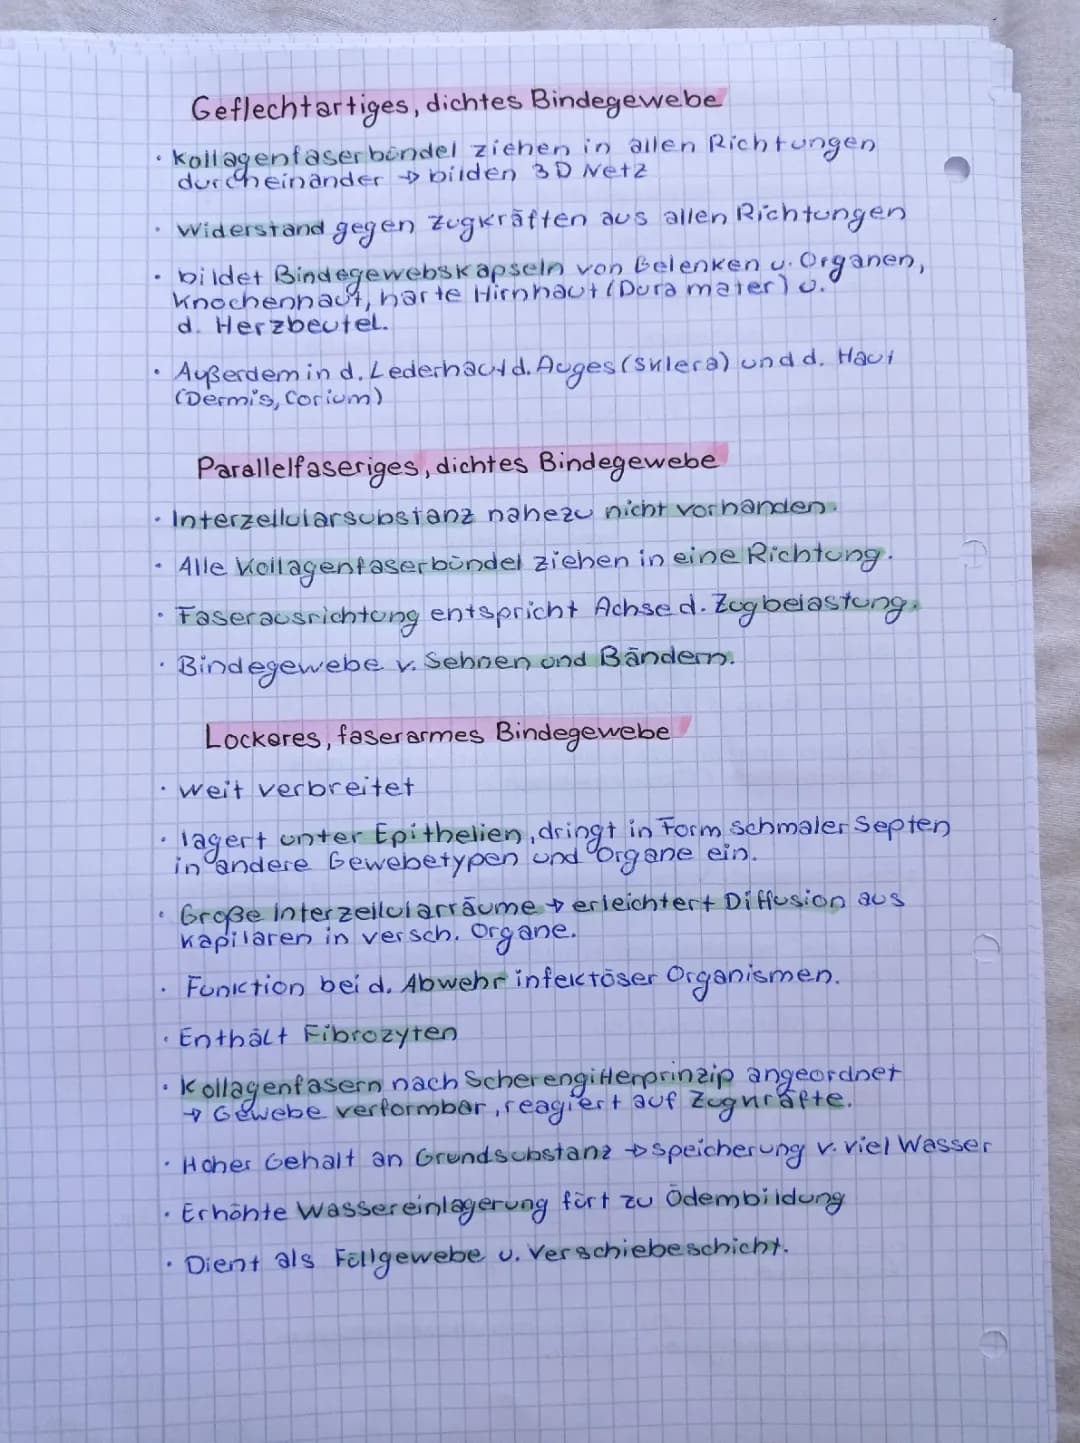 Geflechtartiges, dichtes Bindegewebe
• Kollagenfaserbündel ziehen in allen Richtungen
durcheinander → bilden 3D Netz
• Widerstand gegen Zugkräften aus allen Richtungen
• bildet Bindegewebskapseln von Gelenken u. Organen,
Knochenhaut, harte Hirnhaut (Dura mater) u.
d. Herzbeutel.
• Außerdem in d. Lederhaut d. Auges (Sklera) und d. Haut
(Dermis, Corium)
Parallelfaseriges, dichtes Bindegewebe
• Interzellularsubstanz nahezu nicht vorhanden.
• Alle Kollagenfaserbündel ziehen in eine Richtung.
• Faserausrichtung entspricht Achse d. Zugbelastung.
• Bindegewebe v. Sehnen und Bändern.
Lockeres, faserarmes Bindegewebe
• weit verbreitet
• lagert unter Epithelien, dringt in Form schmaler Septen
in andere Gewebetypen und Organe ein.
• Große Interzellularräume → erleichtert Diffusion aus
Kapilaren in versch. Organe.
• Funktion bei d. Abwehr infektöser Organismen.
• Enthält Fibrozyten
• Kollagenfasern nach Scherengitterprinzip angeordnet
→ Gewebe verformbar, reagiert auf Zugkräfte.
• Hoher Gehalt an Grundsubstanz → Speicherung v. viel Wasser
• Erhöhte Wassereinlagerung fürt zu Ödembildung
• Dient als Füllgewebe u. Verschiebeschicht.